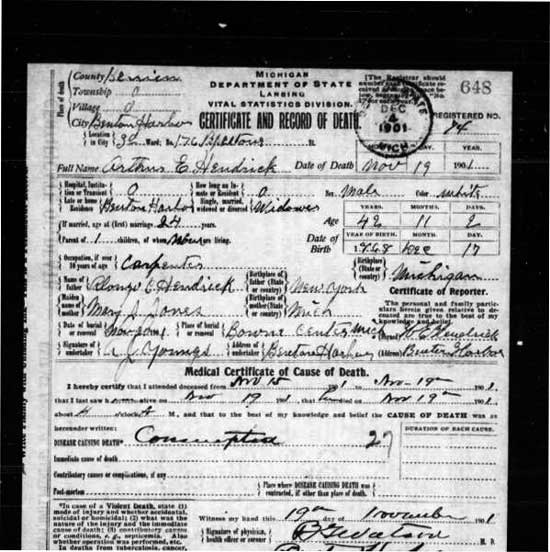 MICHIGAN
DEPARTMENT OF STATE
LANSING
VITAL STATISTICS DIVISION.
CERTIFICATE AND RECORD OF DEATH.
Place of death
County Berrien
Township 0
Village 0
City Benton Harbor
Location in City Ward; St.
648
DEC
4
1901
MICH
REGISTERED NO.
84
Full Name Arthur E Hendrick Date of Death Nov 19 1901
MONTH. DAY. YEAR.
Hospital, Institution or Transient 0 How long an Inmate or Resident 0 Sex Male Color white
Late or home Residence Benton Harbor Single, married, widowed or divorced Widower
If married, age at (first) marriage 24 years.
Age 42 11 2
YEARS. MONTHS. DAYS.
Parent of 1 children, of whom are living.
Date of Birth Dec 17
YEAR OF BIRTH. MONTH. DAY.
Occupation, if over 10 years of age Carpenter
Birthplace (State or country) Michigan
Name of father Alonzo E Hendrick Birthplace of father (State or country) New York
Maiden name of mother Mary S Jones Birthplace of mother (State or country) Mich
Certificate of Reporter.
The personal and family particulars herein given relative to deceased are true to the best of my knowledge and belief.
Date of burial or removal Place of burial or removal Bowne Center Mich
Hendrick
Signature of undertaker A J Youngs Address of undertaker Benton Harbor
(Address) Benton Harbor
Medical Certificate of Cause of Death.
I hereby certify that I attended deceased from Nov 15 1901 to Nov 19th 1901
that I last saw h alive on Nov 19 1901, that died on Nov 19th 1901
about 4 o'clock A M., and that to the best of my knowledge and belief the CAUSE OF DEATH was as
hereunder written:
DURATION OF EACH CAUSE.
DISEASE CAUSING DEATH* Consumption 27
Immediate cause of death
Contributory causes or complications, if any
Post-mortem Place where DISEASE CAUSING DEATH was contracted, if other than place of death.
*In case of a Violent Death, state (1)
mode of injury and whether accidental,
suicidal or homicidal; (2) what was the
nature of the injury and the immediate
cause of death; (3) contributory causes
or conditions, e. g., septicemia. Also
whether operation was performed, etc.
In deaths from tuberculosis, cancer,
Witness my hand this 19th day of November 1901
Signature of physician, health officer or coroner M. D.